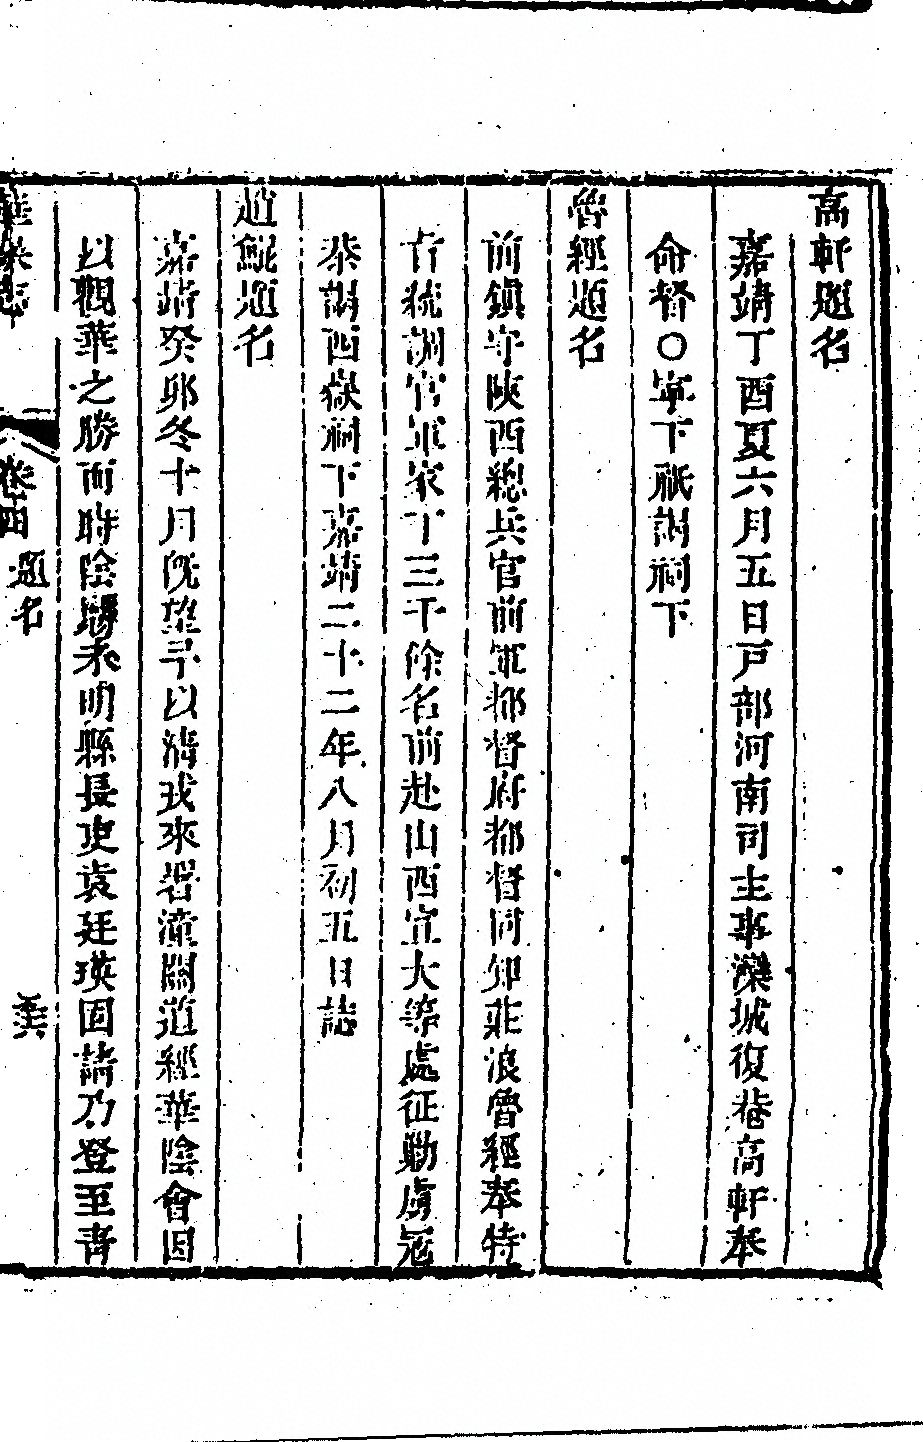 高軒題名
嘉靖丁酉夏六月五日戸部河南司主事灤城復菴高軒奉
命督○寧下祇謁祠下
魯經題名
前鎮守陝西總兵官前軍都督府都督同知莊浪魯經奉特
旨統調官軍家丁三千餘名前赴山西宣大等處征勦虜冦
恭謁西嶽祠下嘉靖二十二年八月初五日誌
趙鯤題名
嘉靖癸卯冬十月既望予以清戎來署潼關道經華陰會因
以觀華之勝而時陰翳未明縣長吏袁廷瑛固請乃登至青
華嶽志
卷四
題名